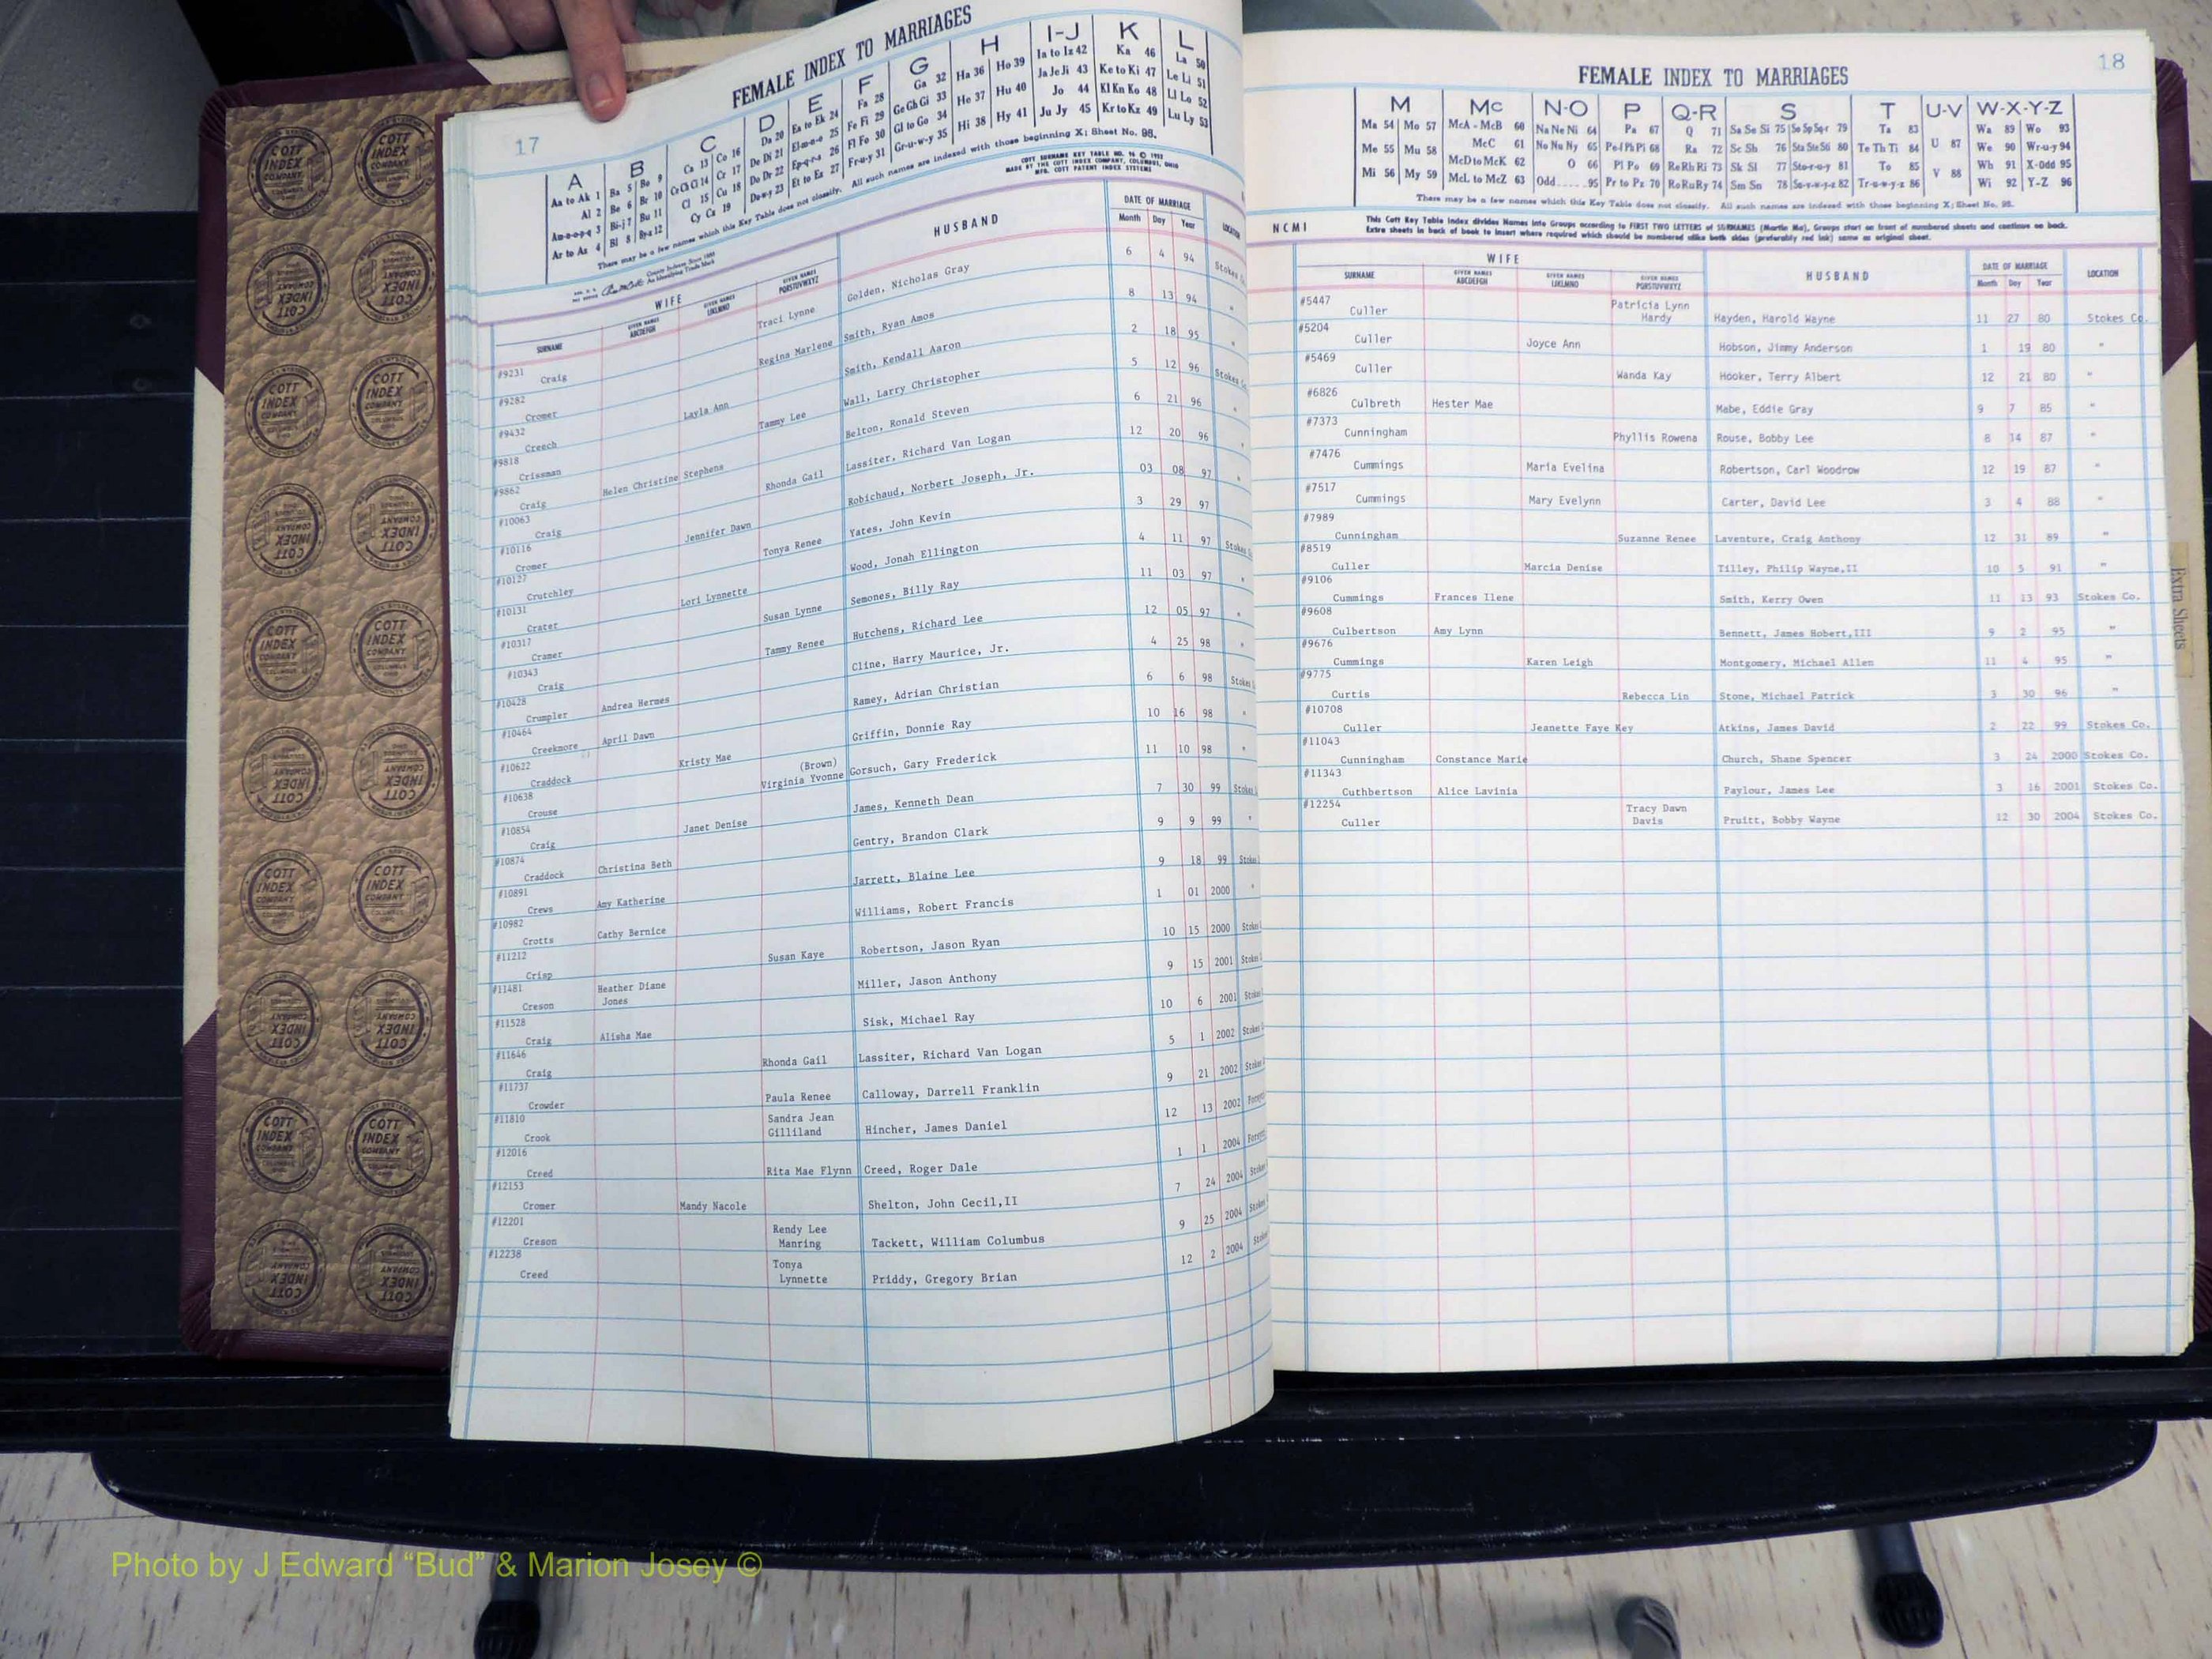 17
FEMALE INDEX TO MARRIAGES
A B C D E F G H I-J K L
Aa to Ak 1 Ba 5 Be 9 Ca 13 Co 16 Da 20 Ea to Ek 24 Fa 28 Ga 32 Ha 36 Ho 39 Ia to Iz 42 Ka 46 La 50
Al 2 Be 6 Br 10 Ce Ch Ci 14 Cr 17 De Di 21 El-m-n-o 25 Fe Fi 29 Ge Gh Gi 33 He 37 Hu 40 Ja Je Ji 43 Ke to Ki 47 Le Li 51
Am-n-o-p-q 3 Bi-j 7 Bu 11 Cl 15 Cu 18 Do Dr 22 Ep-q-r-s 26 Fl Fo 30 Gl to Go 34 Hi 38 Hy 41 Jo 44 Kl Kn Ko 48 Ll Lo 52
Ar to Az 4 Bl 8 By-z 12 Cy Cz 19 Du-w-y 23 Et to Ez 27 Fr-u-y 31 Gr-u-w-y 35 Ju Jy 45 Kr to Kz 49 Lu Ly 53
There may be a few names which this Key Table does not classify. All such names are indexed with those beginning X; Sheet No. 98.
COTT SURNAME KEY TABLE NO. 96 © 1952
MADE BY THE COTT INDEX COMPANY, COLUMBUS, OHIO
MFG. COTT PATENT INDEX SYSTEMS
WIFE HUSBAND DATE OF MARRIAGE LOCATION
SURNAME GIVEN NAMES ABCDEFGH GIVEN NAMES IJKLMNO GIVEN NAMES PQRSTUVWXYZ Month Day Year
#9231 Craig Traci Lynne Golden, Nicholas Gray 6 4 94 Stokes
#9282 Cromer Regina Marlene Smith, Ryan Amos 8 13 94 "
#9432 Creech Layla Ann Smith, Kendall Aaron 2 18 95 "
#9818 Crissman Tammy Lee Wall, Larry Christopher 5 12 96 Stokes
#9862 Craig Helen Christine Stephens Belton, Ronald Steven 6 21 96 "
#10063 Craig Rhonda Gail Lassiter, Richard Van Logan 12 20 96 "
#10116 Cromer Jennifer Dawn Robichaud, Norbert Joseph, Jr. 03 08 97 "
#10127 Crutchley Tonya Renee Yates, John Kevin 3 29 97
#10131 Crater Lori Lynnette Wood, Jonah Ellington 4 11 97 Stokes
#10317 Cramer Susan Lynne Semones, Billy Ray 11 03 97 "
#10343 Craig Tammy Renee Hutchens, Richard Lee 12 05 97 "
#10428 Crumpler Andrea Hermes Cline, Harry Maurice, Jr. 4 25 98 "
#10464 Creekmore April Dawn Ramey, Adrian Christian 6 6 98 Stokes
#10622 Craddock Kristy Mae Griffin, Donnie Ray 10 16 98 "
#10638 Crouse (Brown) Virginia Yvonne Gorsuch, Gary Frederick 11 10 98 "
#10854 Craig Janet Denise James, Kenneth Dean 7 30 99 Stokes
#10874 Craddock Christina Beth Gentry, Brandon Clark 9 9 99 "
#10891 Crews Amy Katherine Jarrett, Blaine Lee 9 18 99 Stokes
#10982 Crotts Cathy Bernice Williams, Robert Francis 1 01 2000 "
#11212 Crisp Susan Kaye Robertson, Jason Ryan 10 15 2000 Stokes
#11481 Creson Heather Diane Jones Miller, Jason Anthony 9 15 2001 Stokes
#11528 Craig Alisha Mae Sisk, Michael Ray 10 6 2001 Stokes
#11646 Craig Rhonda Gail Lassiter, Richard Van Logan 5 1 2002 Stokes
#11737 Crowder Paula Renee Calloway, Darrell Franklin 9 21 2002 Stokes
#11810 Crook Sandra Jean Gilliland Hincher, James Daniel 12 13 2002 Forsyth
#12016 Creed Rita Mae Flynn Creed, Roger Dale 1 1 2004 Forsyth
#12153 Cromer Mandy Nacole Shelton, John Cecil,II 7 24 2004 Stokes
#12201 Creson Rendy Lee Manring Tackett, William Columbus 9 25 2004 Stokes
#12238 Creed Tonya Lynnette Priddy, Gregory Brian 12 2 2004 Stokes
18
FEMALE INDEX TO MARRIAGES
M Mc N-O P Q-R S T U-V W-X-Y-Z
Ma 54 Mo 57 McA - McB 60 Na Ne Ni 64 Pa 67 Q 71 Sa Se Si 75 So Sp Sq-r 79 Ta 83 U 87 Wa 89 Wo 93
Me 55 Mu 58 McC 61 No Nu Ny 65 Pe-f Ph Pi 68 Ra 72 Sc Sh 76 Sta Ste Sti 80 Te Th Ti 84 V 88 We 90 Wr-u-y 94
Mi 56 My 59 McD to McK 62 O 66 Pl Po 69 Re Rh Ri 73 Sk Sl 77 Sto-r-u-y 81 To 85 Wh 91 X-Odd 95
McL to McZ 63 Odd 95 Pr to Pz 70 Ro Ru Ry 74 Sm Sn 78 Su-v-w-y-z 82 Tr-u-w-y-z 86 Wi 92 Y-Z 96
There may be a few names which this Key Table does not classify. All such names are indexed with those beginning X; Sheet No. 98.
NCMI This Cott Key Table Index divides Names into Groups according to FIRST TWO LETTERS of SURNAMES (Martin Ma), Groups start on front of numbered sheets and continue on back.
Extra sheets in back of book to insert where required which should be numbered alike both sides (preferably red ink) same as original sheet.
WIFE HUSBAND DATE OF MARRIAGE LOCATION
SURNAME GIVEN NAMES ABCDEFGH GIVEN NAMES IJKLMNO GIVEN NAMES PQRSTUVWXYZ Month Day Year
#5447 Culler Patricia Lynn Hardy Hayden, Harold Wayne 11 27 80 Stokes Co.
#5204 Culler Joyce Ann Hobson, Jimmy Anderson 1 19 80 "
#5469 Culler Wanda Kay Hooker, Terry Albert 12 21 80 "
#6826 Culbreth Hester Mae Mabe, Eddie Gray 9 7 85 "
#7373 Cunningham Phyllis Rowena Rouse, Bobby Lee 8 14 87 "
#7476 Cummings Maria Evelina Robertson, Carl Woodrow 12 19 87 "
#7517 Cummings Mary Evelynn Carter, David Lee 3 4 88 "
#7989 Cunningham Suzanne Renee Laventure, Craig Anthony 12 31 89 "
#8519 Culler Marcia Denise Tilley, Philip Wayne,II 10 5 91 "
#9106 Cummings Frances Ilene Smith, Kerry Owen 11 13 93 Stokes Co.
#9608 Culbertson Amy Lynn Bennett, James Hobert,III 9 2 95 "
#9676 Cummings Karen Leigh Montgomery, Michael Allen 11 4 95 "
#9775 Curtis Rebecca Lin Stone, Michael Patrick 3 30 96 "
#10708 Culler Jeanette Faye Key Atkins, James David 2 22 99 Stokes Co.
#11043 Cunningham Constance Marie Church, Shane Spencer 3 24 2000 Stokes Co.
#11343 Cuthbertson Alice Lavinia Paylour, James Lee 3 16 2001 Stokes Co.
#12254 Culler Tracy Dawn Davis Pruitt, Bobby Wayne 12 30 2004 Stokes Co.
Extra Sheets
COTT INDEX COMPANY
Photo by J Edward “Bud” & Marion Josey ©